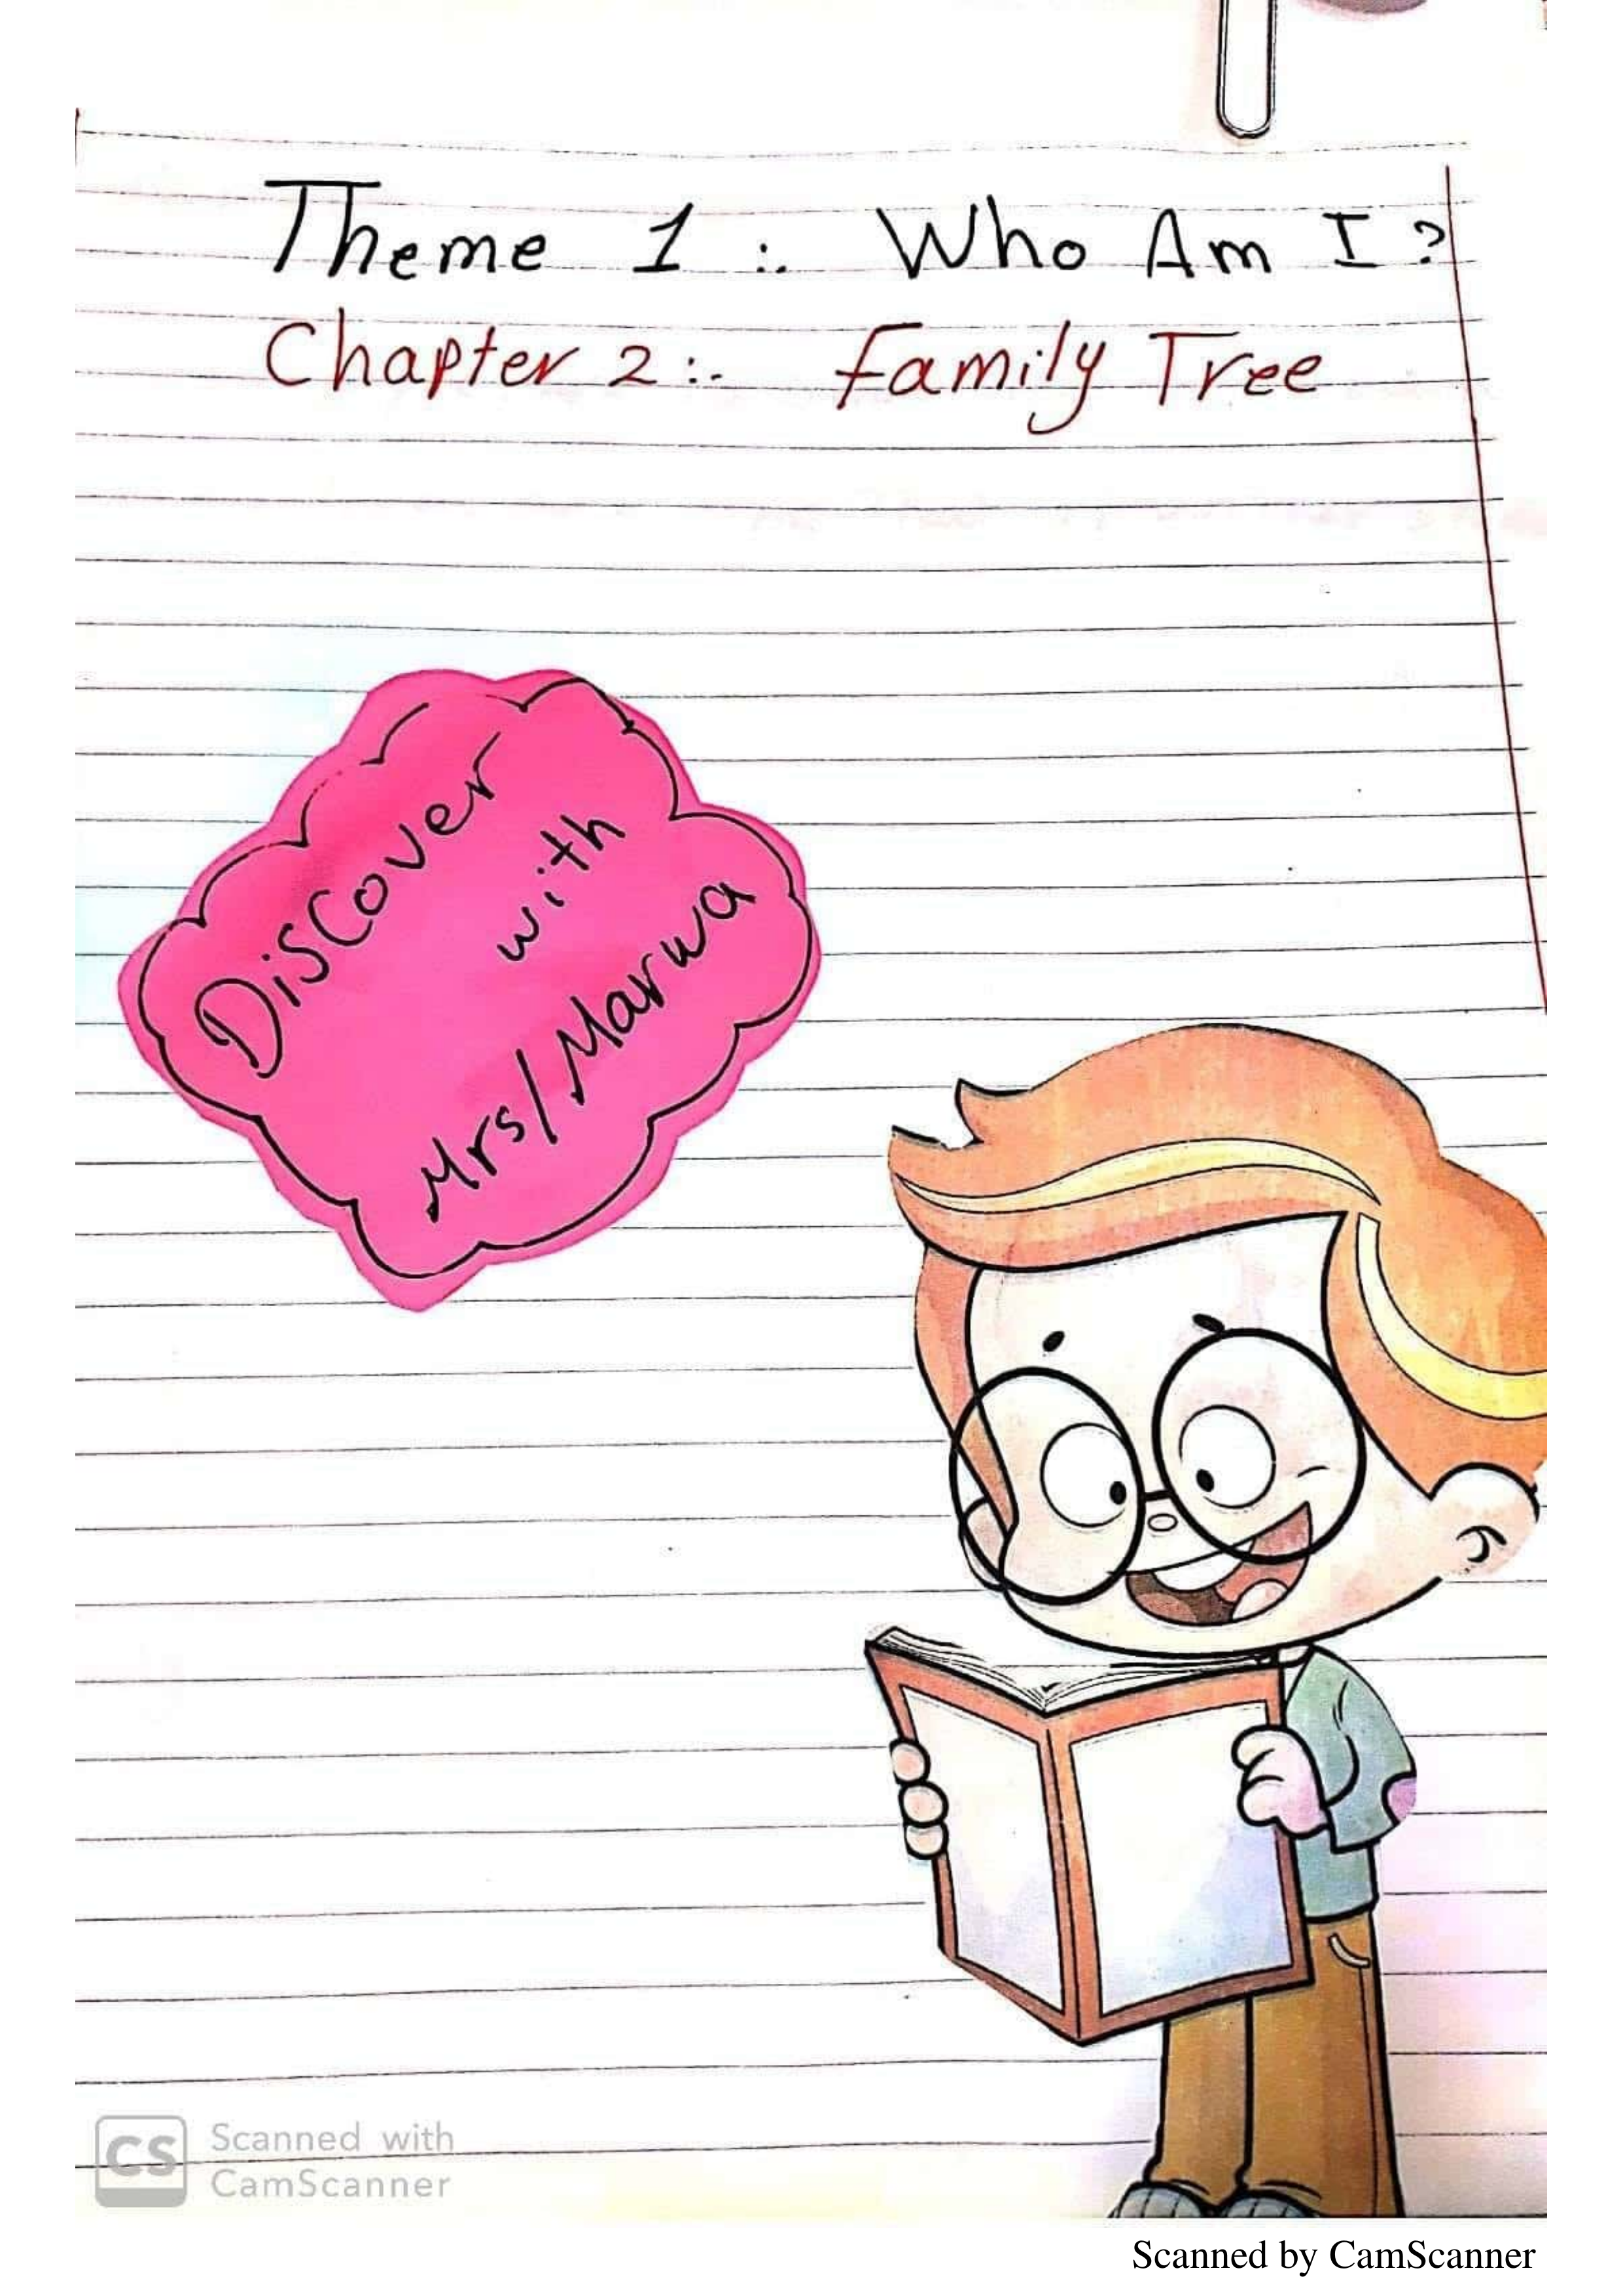 Theme 1 :. Who Am I ?
Chapter 2:. Family Tree
DisCover
with
Mrs/Marwa
CS
Scanned with
CamScanner
Scanned by CamScanner